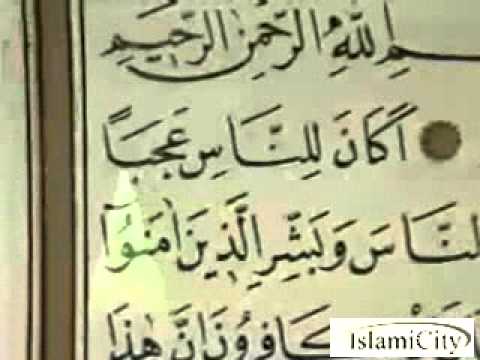 مِ اللهِ الرَّحْمٰنِ الرَّحِيمِ
أَكَانَ لِلنَّاسِ عَجَبًا
لنَّاسَ وَبَشِّرِ الَّذِينَ اٰمَنُوٓا
كَافِرُونَ إِنَّ هٰذَا
IslamiCity